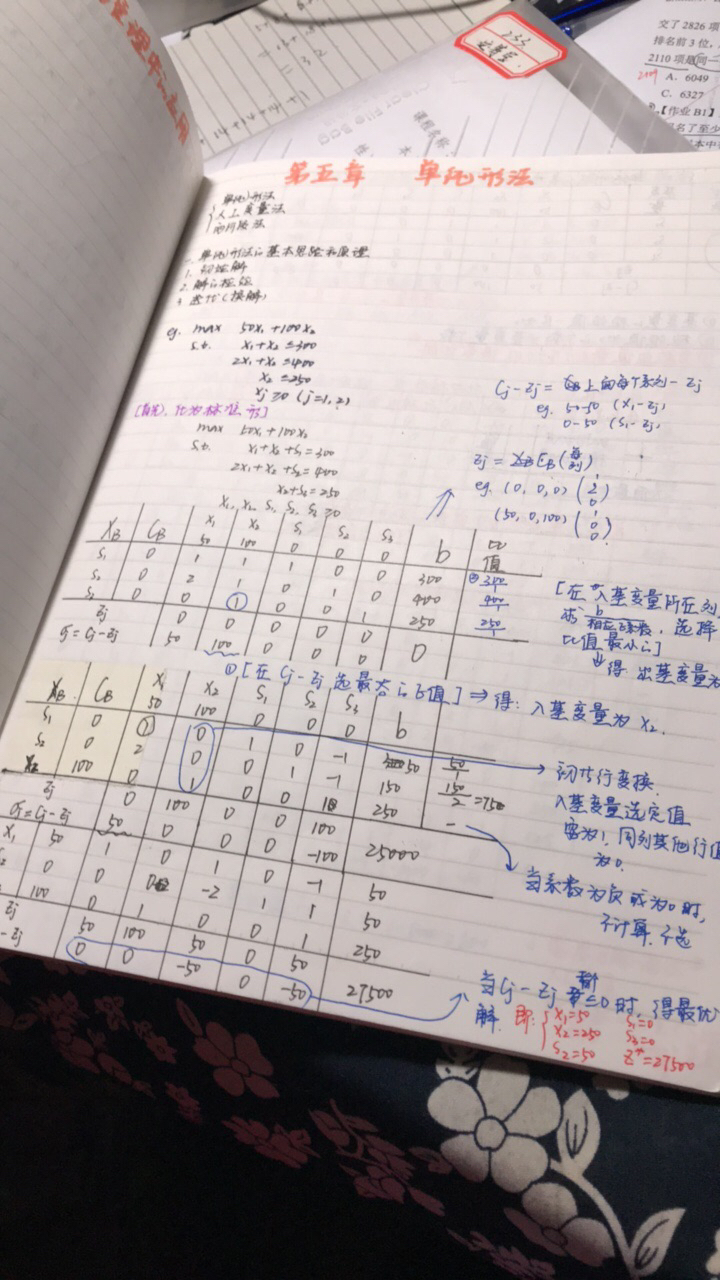 第五章 单纯形法
单纯形法
人工变量法
两阶段法
一、单纯形法的基本思路和原理
1. 初始解
2. 解的检验
3. 迭代(换解)
eg. max 50x₁+100x₂
s.t. x₁+x₂≤300
2x₁+x₂≤400
x₂≤250
xj≥0 (j=1,2)
[首先，化为标准形]
max 50x₁+100x₂
s.t. x₁+x₂+s₁=300
2x₁+x₂+s₂=400
x₂+s₃=250
x₁, x₂, s₁, s₂, s₃ ≥0
Cj-Zj = 上面每个系列-Zj
eg. 50-50 (x₁-zj)
0-50 (s₁-zj)
eg. (0, 0, 0) (1 2 0)
(50, 0, 100) (1 0 0)
XB CB x₁ x₂ s₁ s₂ s₃ b 比值
50 100 0 0 0
s₁ 0 1 1 1 0 0 300 300/1
s₂ 0 2 1 0 1 0 400 400/1
s₃ 0 0 1 0 0 1 250 250/1
Zj 0 0 0 0 0
σj=Cj-Zj 50 100 0 0 0 0
[在入基变量所在列
求 b/相应系数，选择
比值最小的]
得：出基变量为
①[在Cj-Zj选最大的σ值]⇒得：入基变量为x₂.
XB CB x₁ x₂ s₁ s₂ s₃ b
50 100 0 0 0
s₁ 0 1 0 1 0 -1 50 50/1
s₂ 0 2 0 0 1 -1 150 150/2=750
x₂ 100 0 1 0 0 1 250 -
Zj 0 100 0 0 100
σj=Cj-Zj 50 0 0 0 -100 25000
x₁ 50 1 0 1 0 -1 50
0 0 0 -2 1 1 50
100 0 1 0 0 1 250
Zj 50 100 50 0 50
-Zj 0 0 -50 0 -50 27500
初等行变换
入基变量选定值
需为1, 同列其他行值
为0.
当系数为负或为0时,
不计算.不选
当Cj-Zj ≤0时，得最优
解. 即: x₁=50 s₁=0
x₂=250 s₃=0
s₂=50 z*=27500
交了 2826 项
排名前 3 位，
2110 项是同一
A. 6049
C. 6327
【作业 B1】